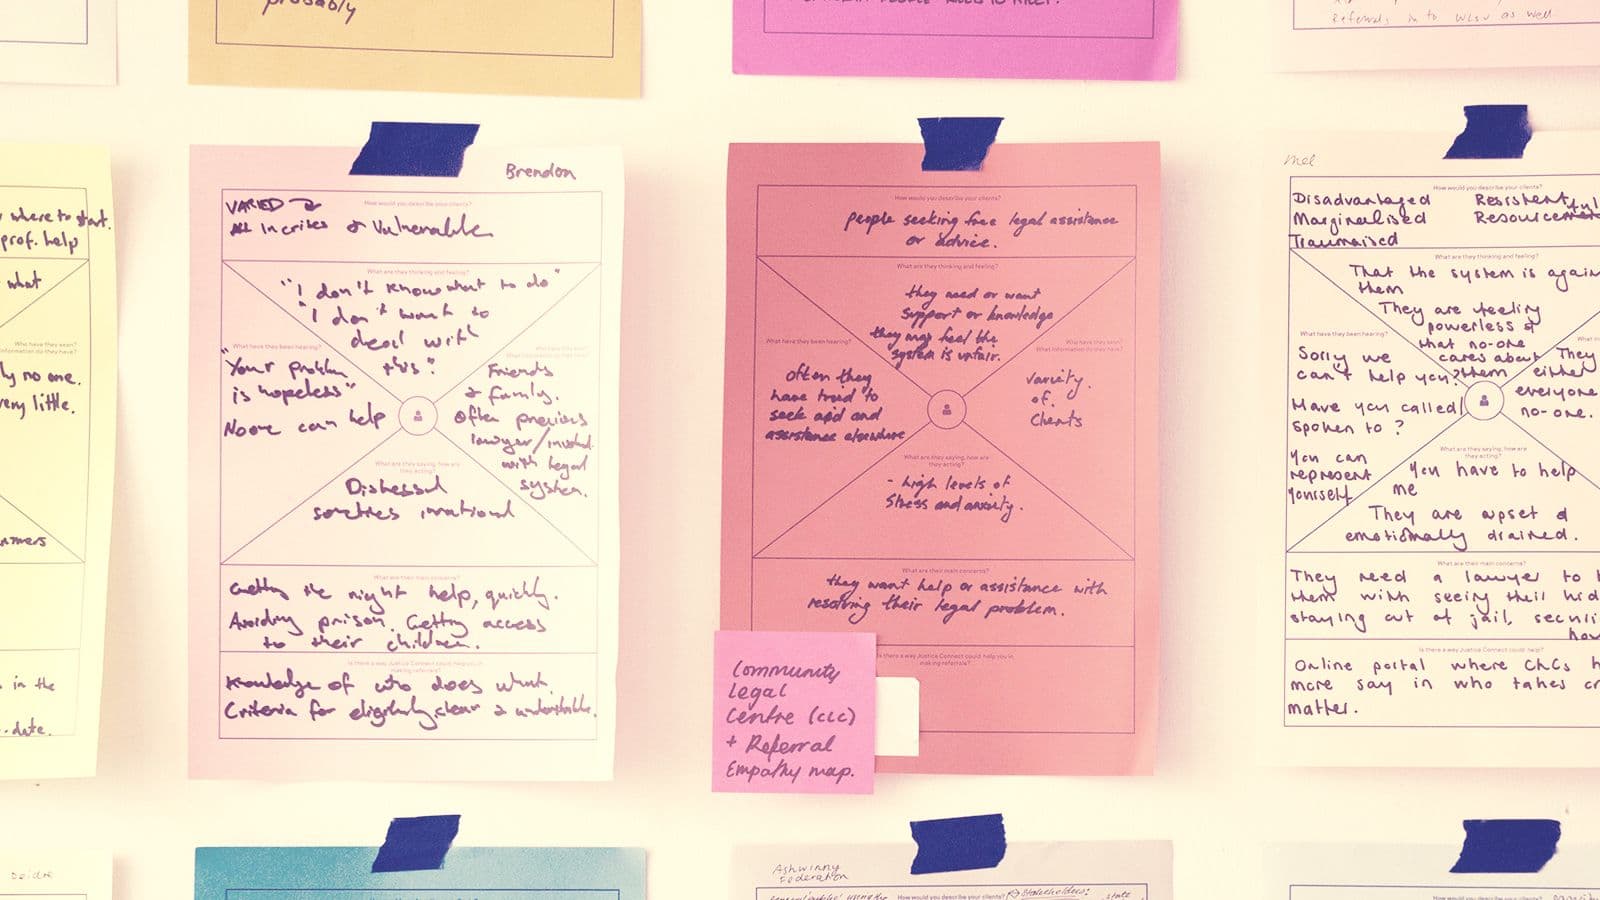 probably
Referrals in to WLSV as well
where to start.
prof. help
what
Who have they seen?
information do they have?
no one.
very little.
in the
date.
Brendon
How would you describe your clients?
VARIED
All in crises & vulnerable
What are they thinking and feeling?
"I don't know what to do"
"I don't want to
deal with
this."
What have they been hearing?
"Your problem
is hopeless"
No one can help
Who have they seen?
What information do they have?
Friends
& family.
often previous
lawyer/involvd.
with legal
system.
What are they saying, how are
they acting?
Distressed
sometimes irrational
What are their main concerns?
Getting the right help, quickly.
Avoiding prison. Getting access
to their children.
Is there a way Justice Connect could help you in
making referrals?
Knowledge of who does what.
Criteria for eligibility clear & understandable.
How would you describe your clients?
people seeking free legal assistance
or advice.
What are they thinking and feeling?
they need or want
support or knowledge
they may feel the
system is unfair.
What have they been hearing?
often they
have tried to
seek aid and
assistance elsewhere
Who have they seen?
What information do they have?
Variety
of
Clients
What are they saying, how are
they acting?
- high levels of
stress and anxiety.
What are their main concerns?
they want help or assistance with
resolving their legal problem.
Is there a way Justice Connect could help you in
making referrals?
Community
Legal
Centre (CLC)
+ Referral
Empathy map.
Mel
How would you describe your clients?
Disadvantaged Resistent
Marginalised
Traumaised
What are they thinking and feeling?
That the system is again
them
They are feeling
powerless &
that no-one
cares about
them
What have they been hearing?
Sorry we
can't help you?
Have you called/
spoken to?
You can
represent
yourself
They
either
everyone
no-one.
What are they saying, how are
they acting?
You have to help
me
They are upset &
emotionally drained.
What are their main concerns?
They need a lawyer to
them with seeing their kid
staying out of jail, securi
Is there a way Justice Connect could help?
Online portal where CLCs h
more say in who takes
matter.
Deidre
Ashwinny
Federation
How would you describe your clients?
Stakeholders: